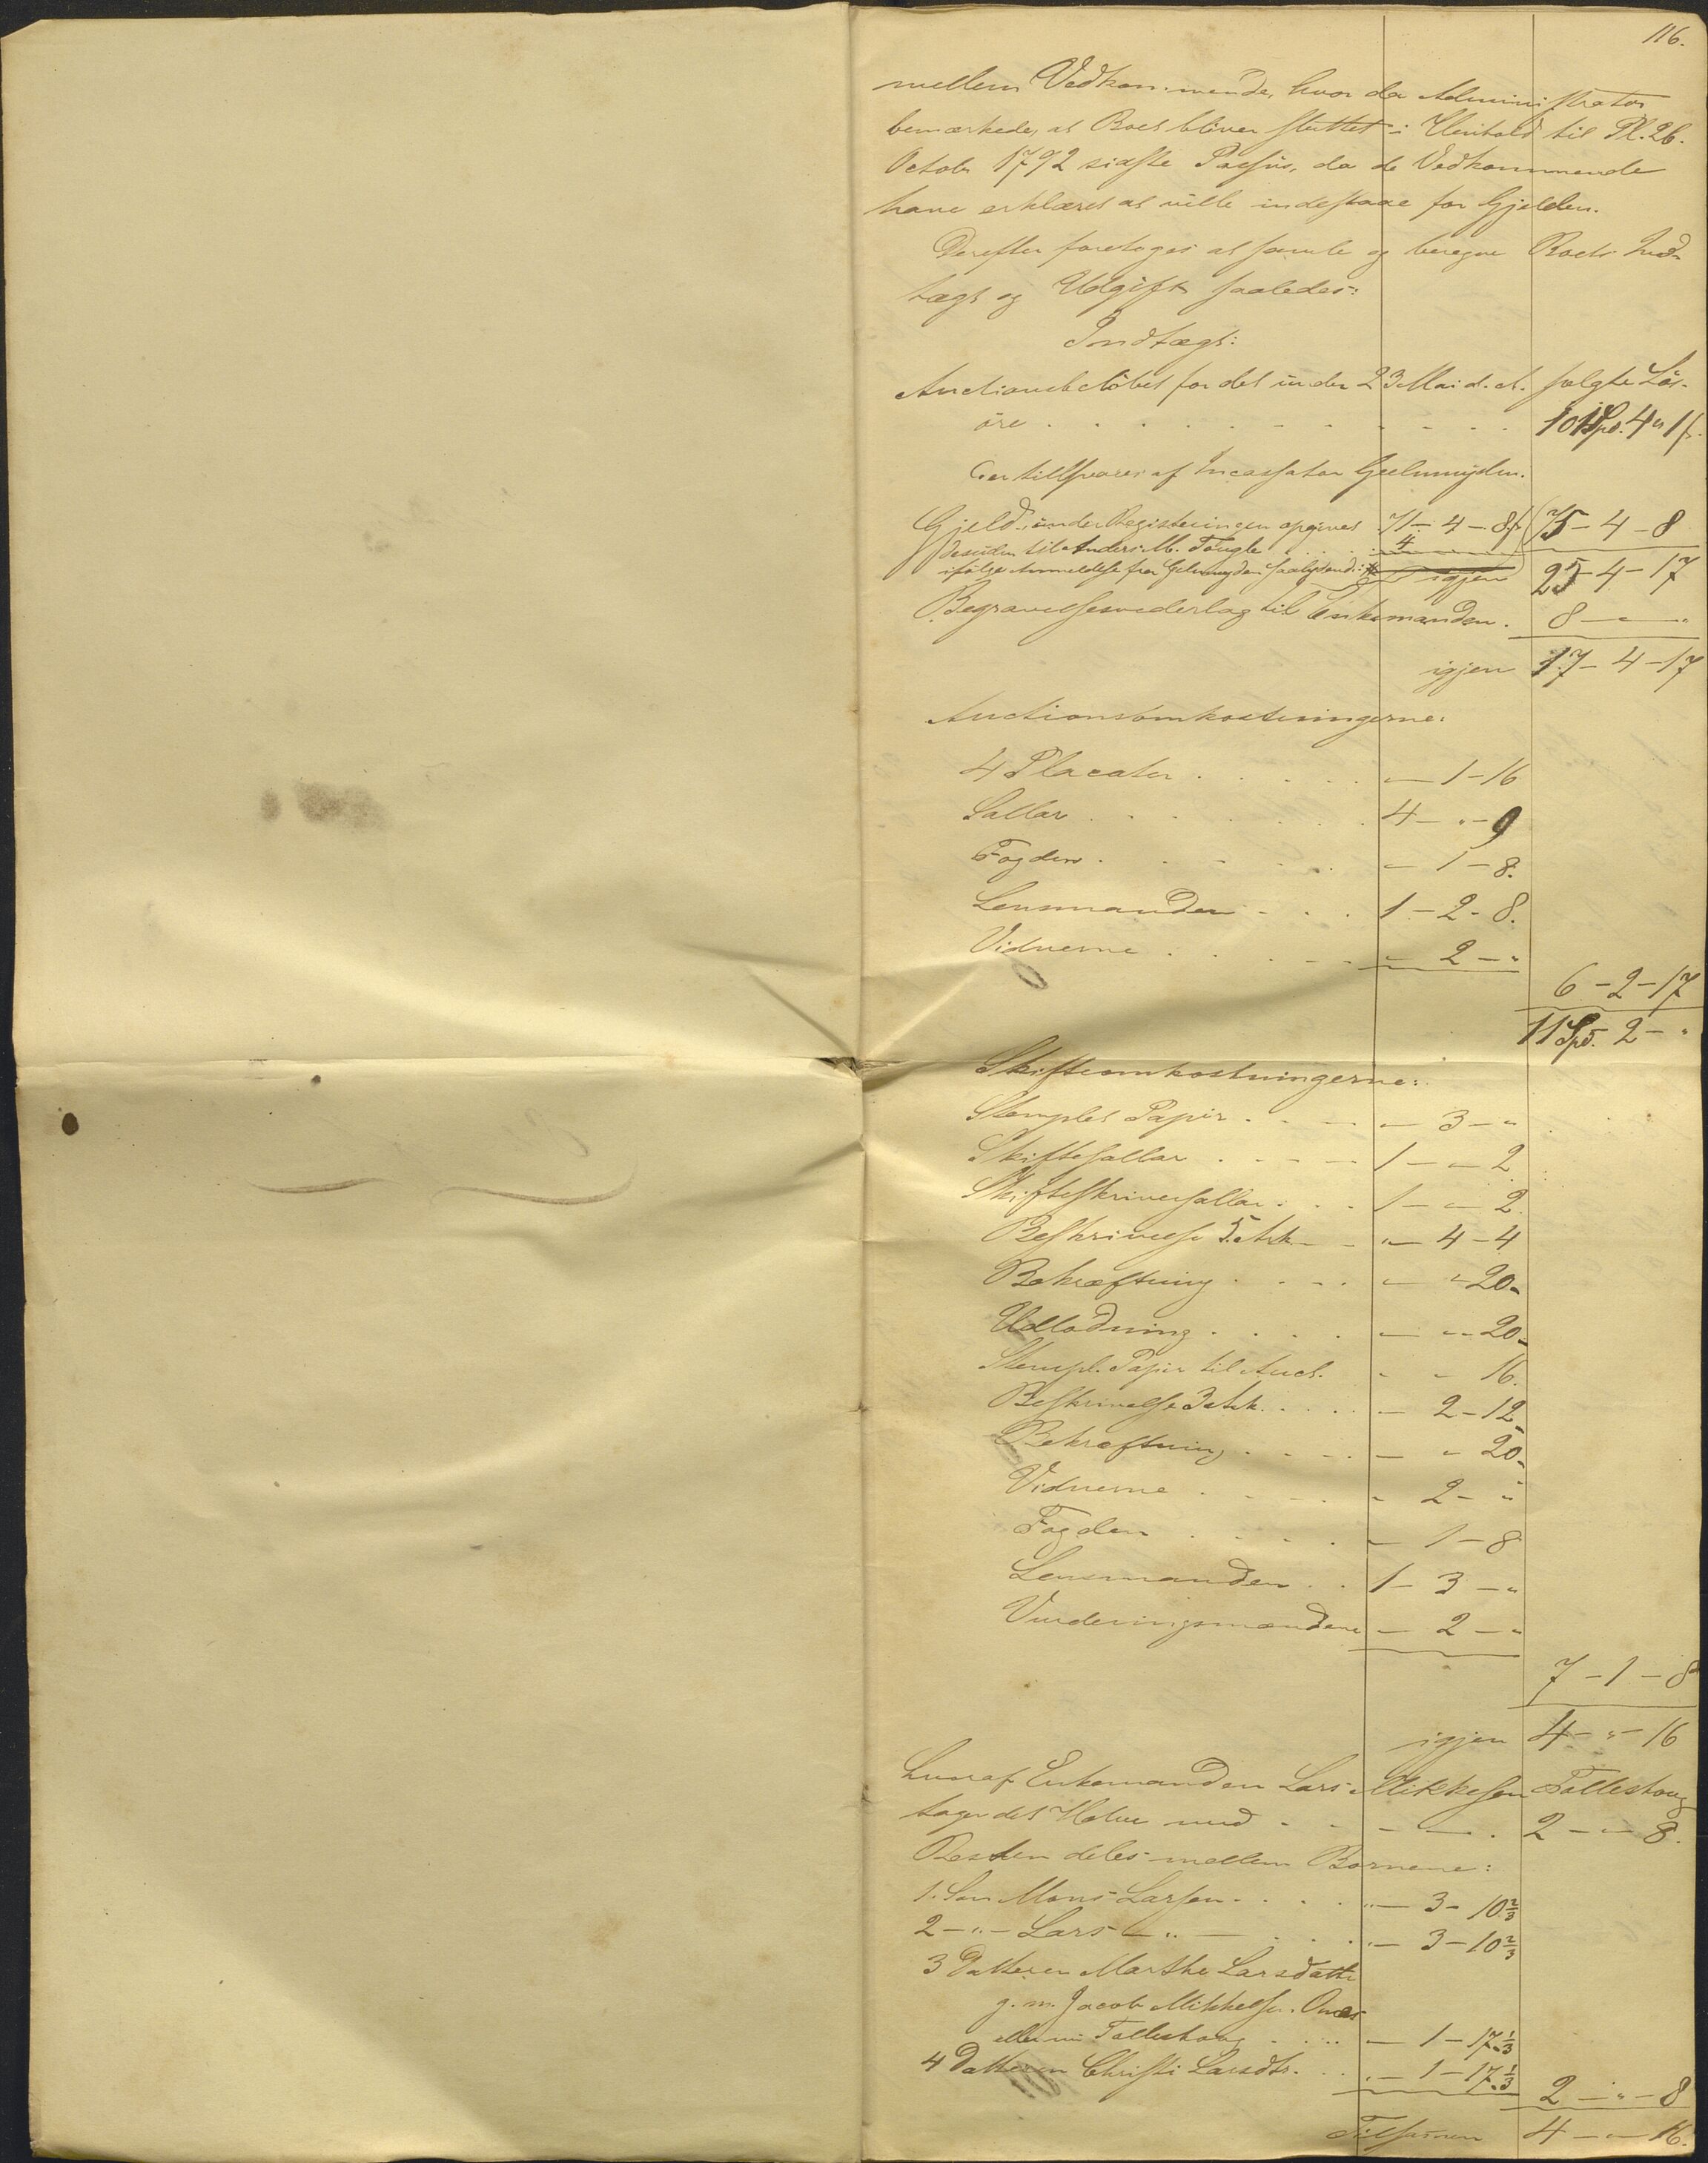 116.
mellem Vedkommende, hvor da Administrator
bemærkede, at Boet bliver sluttet i Henhold til Pl. 26.
Octobr 1792 sidste Passus, da de Vedkommende
have erklæret at ville indestaae for Gjelden.
Derefter foretoges at samle og beregne Boets Ind-
tægt og Udgift saaledes:
Indtægt:
Auctionsbeløbet for det under 23 Mai d. A. solgte Løs-
øre . . . 101 Spd. 4 " 1 s.
der tillsvares af Incassator Geelmuyden.
Gjeld under Registeringen opgivet 71 - 4 - 8 75 - 4 - 8
desuden til Anders M. . . . 4
ifølge Anmeldelse fra Gelmuyden igjen 25 - 4 - 17
Begravelsesvederlag til Enkemanden. 8 - " - "
igjen 17 - 4 - 17
Auctionsomkostningerne:
4 Placater . . . — 1 - 16
Sallar . . . 4 - " - 9
Fogden . . . — 1 - 8.
Lensmanden . . . 1 - 2 - 8.
Vidnerne . . . — 2 - "
6 - 2 - 17
11 Spd. 2 - "
Skifteomkostningerne:
Stemplet Papir . . . — 3 - "
Skiftesallar . . . 1 - " - 2
Skifteskriversallar . . . 1 - " - 2
Beskrivelse 5 Ark . . . " - 4 - 4
Bekræftning . . . — " 20 -
Udlodning . . . — " - 20 -
Stempl. Papir til Auct. - - 16.
Beskrivelse 3 Ark . . . — 2 - 12
Bekræftning . . . — " 20 -
Vidnerne . . . " 2 - "
Fogden . . . — 1 - 8
Lensmanden . . 1 - 3 - "
Vurderingsmændene — 2 - "
7 - 1 - 8
igjen 4 - " - 16
hvoraf Enkemanden Lars Mikkelsen Tolleshoug
tager det Halve med . . . 2 - " - 8.
Resten deles mellem Børnene:
1. Søn Mons Larsen . . . " - 3 - 10 2/3
2 - " - Lars - " - . . . " - 3 - 10 2/3
3 Datteren Marthe Larsdatter
g. m. Jacob Mikkelsen
eller nu Tolleshoug . . . — 1 - 17 1/3
4 Datteren Christi Larsdtr. . . . — 1 - 17 1/3
2 - " - 8
Tilsammen 4 - " - 16.